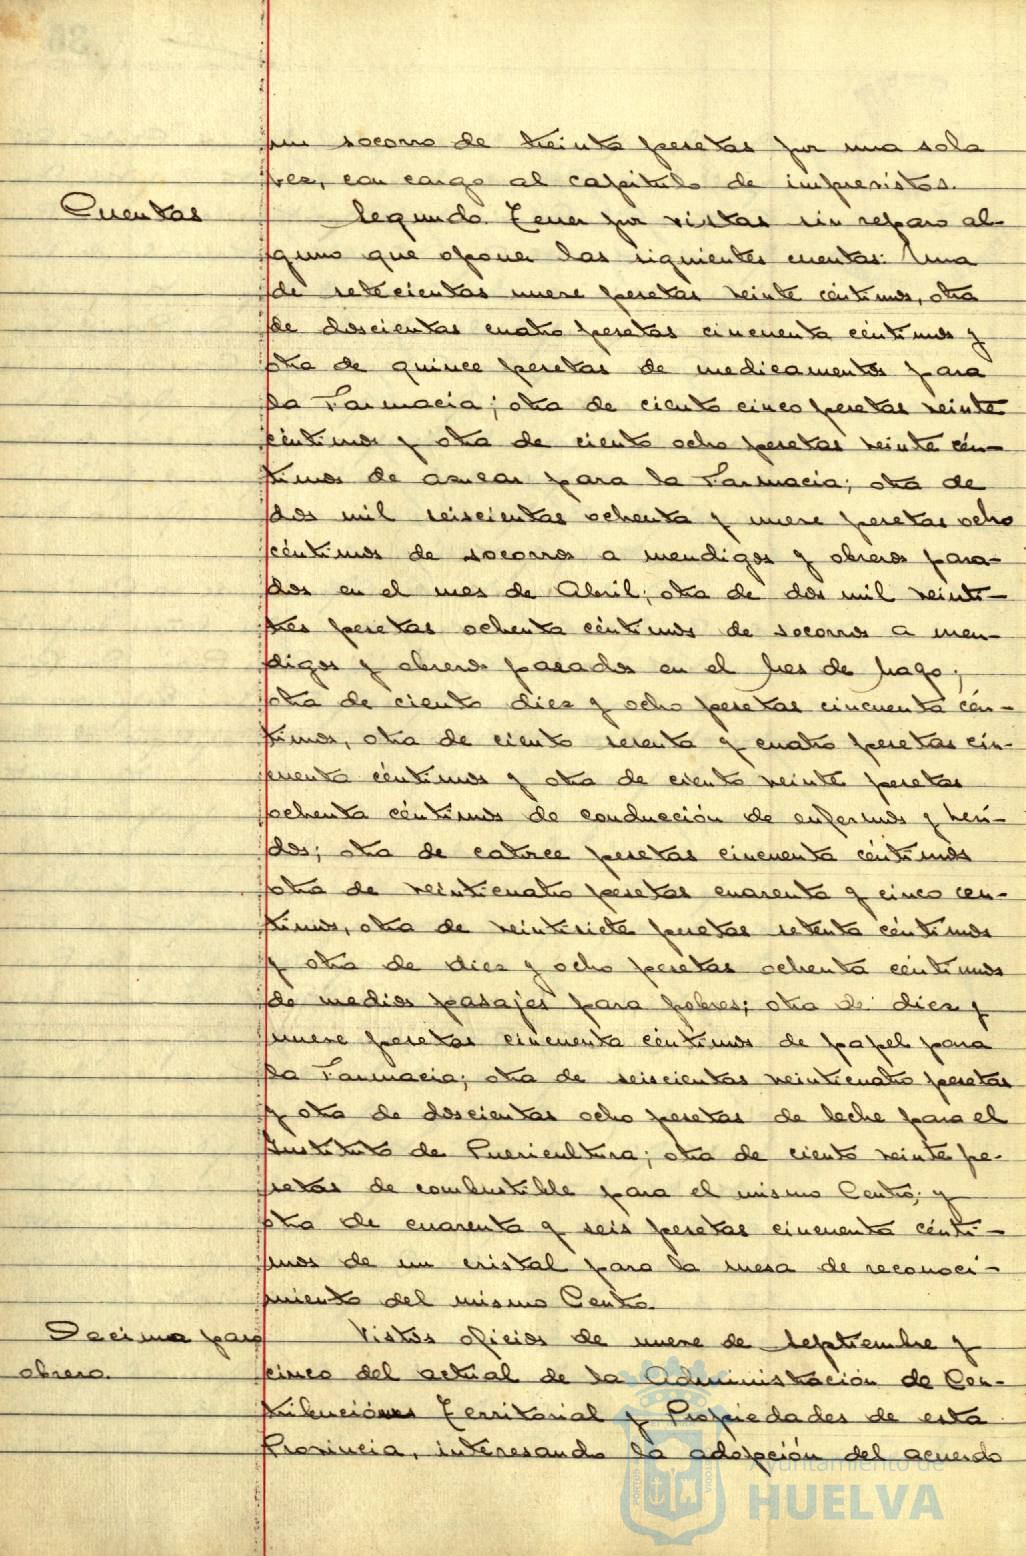 un socorro de treinta pesetas por una sola
vez, con cargo al capitulo de imprevistos.
Cuentas
Segundo. Tener por vistas sin reparo al-
guno que oponer las siguientes cuentas: Una
de setecientas nueve pesetas veinte céntimos, otra
de doscientas cuatro pesetas cincuenta céntimos y
otra de quince pesetas de medicamentos para
la Farmacia; otra de ciento cinco pesetas veinte
céntimos y otra de ciento ocho pesetas veinte cén-
timos de azucar para la Farmacia; otra de
dos mil seiscientas ochenta y nueve pesetas ocho
céntimos de socorros a mendigos y obreros para-
dos en el mes de Abril; otra de dos mil veinti-
tres pesetas ochenta céntimos de socorros a men-
digos y obreros parados en el Mes de Mayo;
otra de ciento diez y ocho pesetas cincuenta cén-
timos, otra de ciento sesenta y cuatro pesetas cin-
cuenta céntimos y otra de ciento veinte pesetas
ochenta céntimos de conducción de enfermos y heri-
dos; otra de catorce pesetas cincuenta céntimos
otra de veinticuatro pesetas cuarenta y cinco cen-
timos, otra de veintisiete pesetas setenta céntimos
y otra de diez y ocho pesetas ochenta céntimos
de medios pasajes para pobres; otra de diez y
nueve pesetas cincuenta céntimos de papel para
la Farmacia; otra de seiscientas veinticuatro pesetas
y otra de doscientas ocho pesetas de leche para el
Instituto de Puericultura; otra de ciento veinte pe-
setas de combustible para el mismo Centro; y
otra de cuarenta y seis pesetas cincuenta cénti-
mos de un cristal para la mesa de reconoci-
miento del mismo Centro.
Decima paro
obrero.
Vistos oficios de nueve de Septiembre y
cinco del actual de la Administración de Con-
tribuciónes Territorial y Propiedades de esta
Provincia, interesando la adopción del acuerdo
Ayuntamiento de
HUELVA